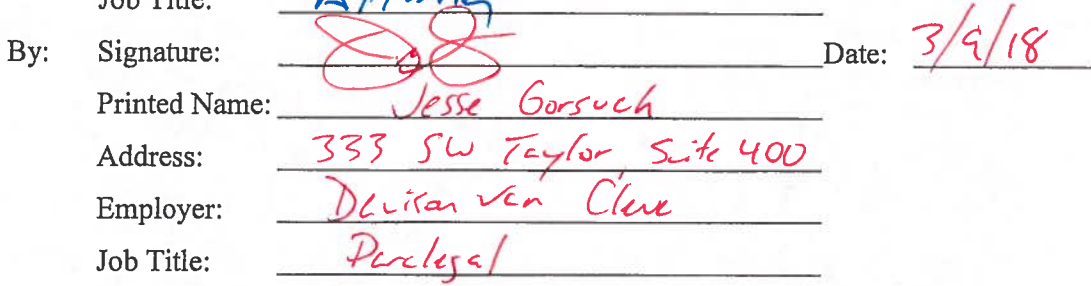 Job Title: Attorney
By: Signature: Date: 3/9/18
Printed Name: Jesse Gorsuch
Address: 333 SW Taylor Suite 400
Employer: Davison Van Cleve
Job Title: Paralegal